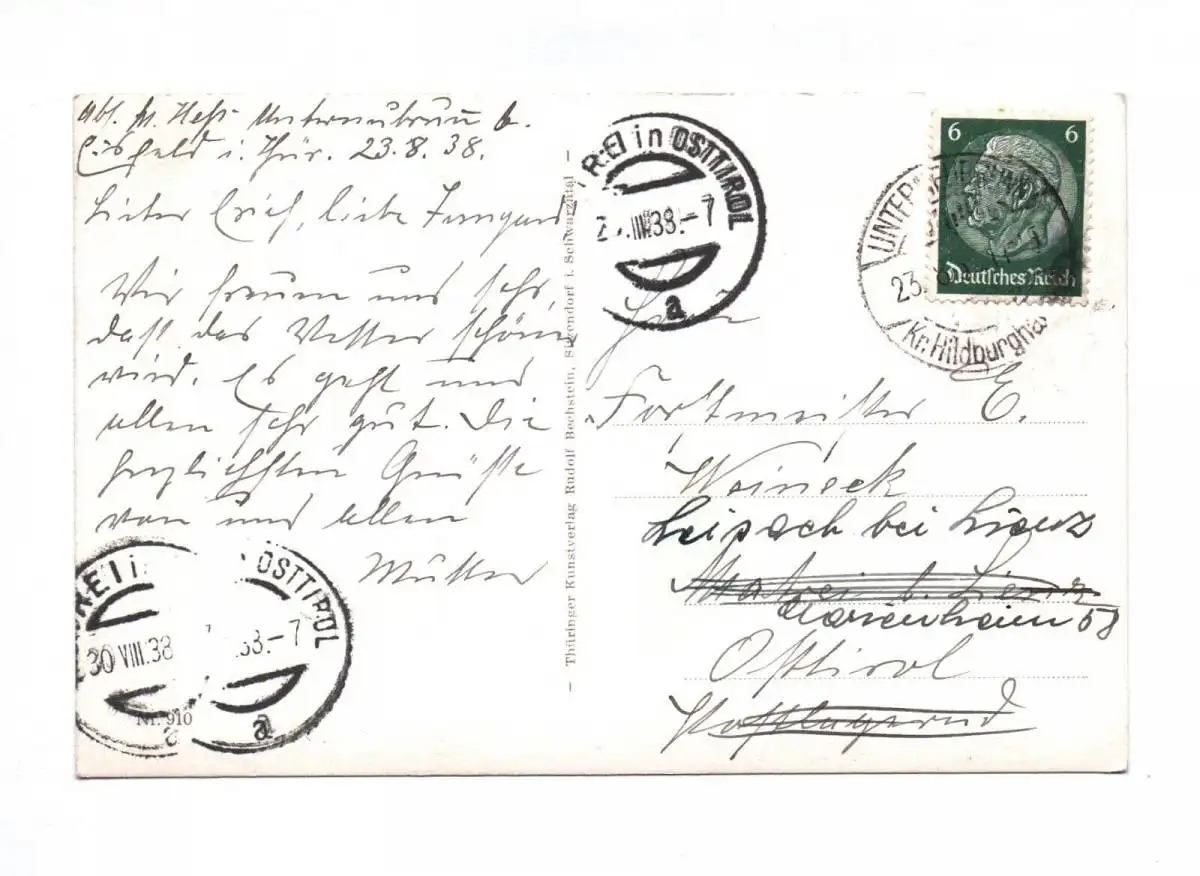 Abs. M. Heß Unterneubrunn b.
Eisfeld i. Thür. 23.8.38.
Lieber Erich, liebe Irmgard,
Wir freuen uns sehr,
daß das Wetter schön
wird. Es geht uns
allen sehr gut. Die
herzlichsten Grüße
von uns allen
Mutter
REI in OSTTIROL
30 VIII.38
.38.–7
a
a
Nr. 910
– Thüringer Kunstverlag Rudolf Bechstein, Sitzendorf i. Schwarzatal –
REI in OSTTIROL
VIII.38.–7
a
6 6
Deutsches Reich
UNTERN
23.
Kr. Hildburgha
Herrn
Forstmeister E.
Weineck
Leisach bei Lienz
Matrei b. Lienz
Marienheim 58
Osttirol
Postlagernd